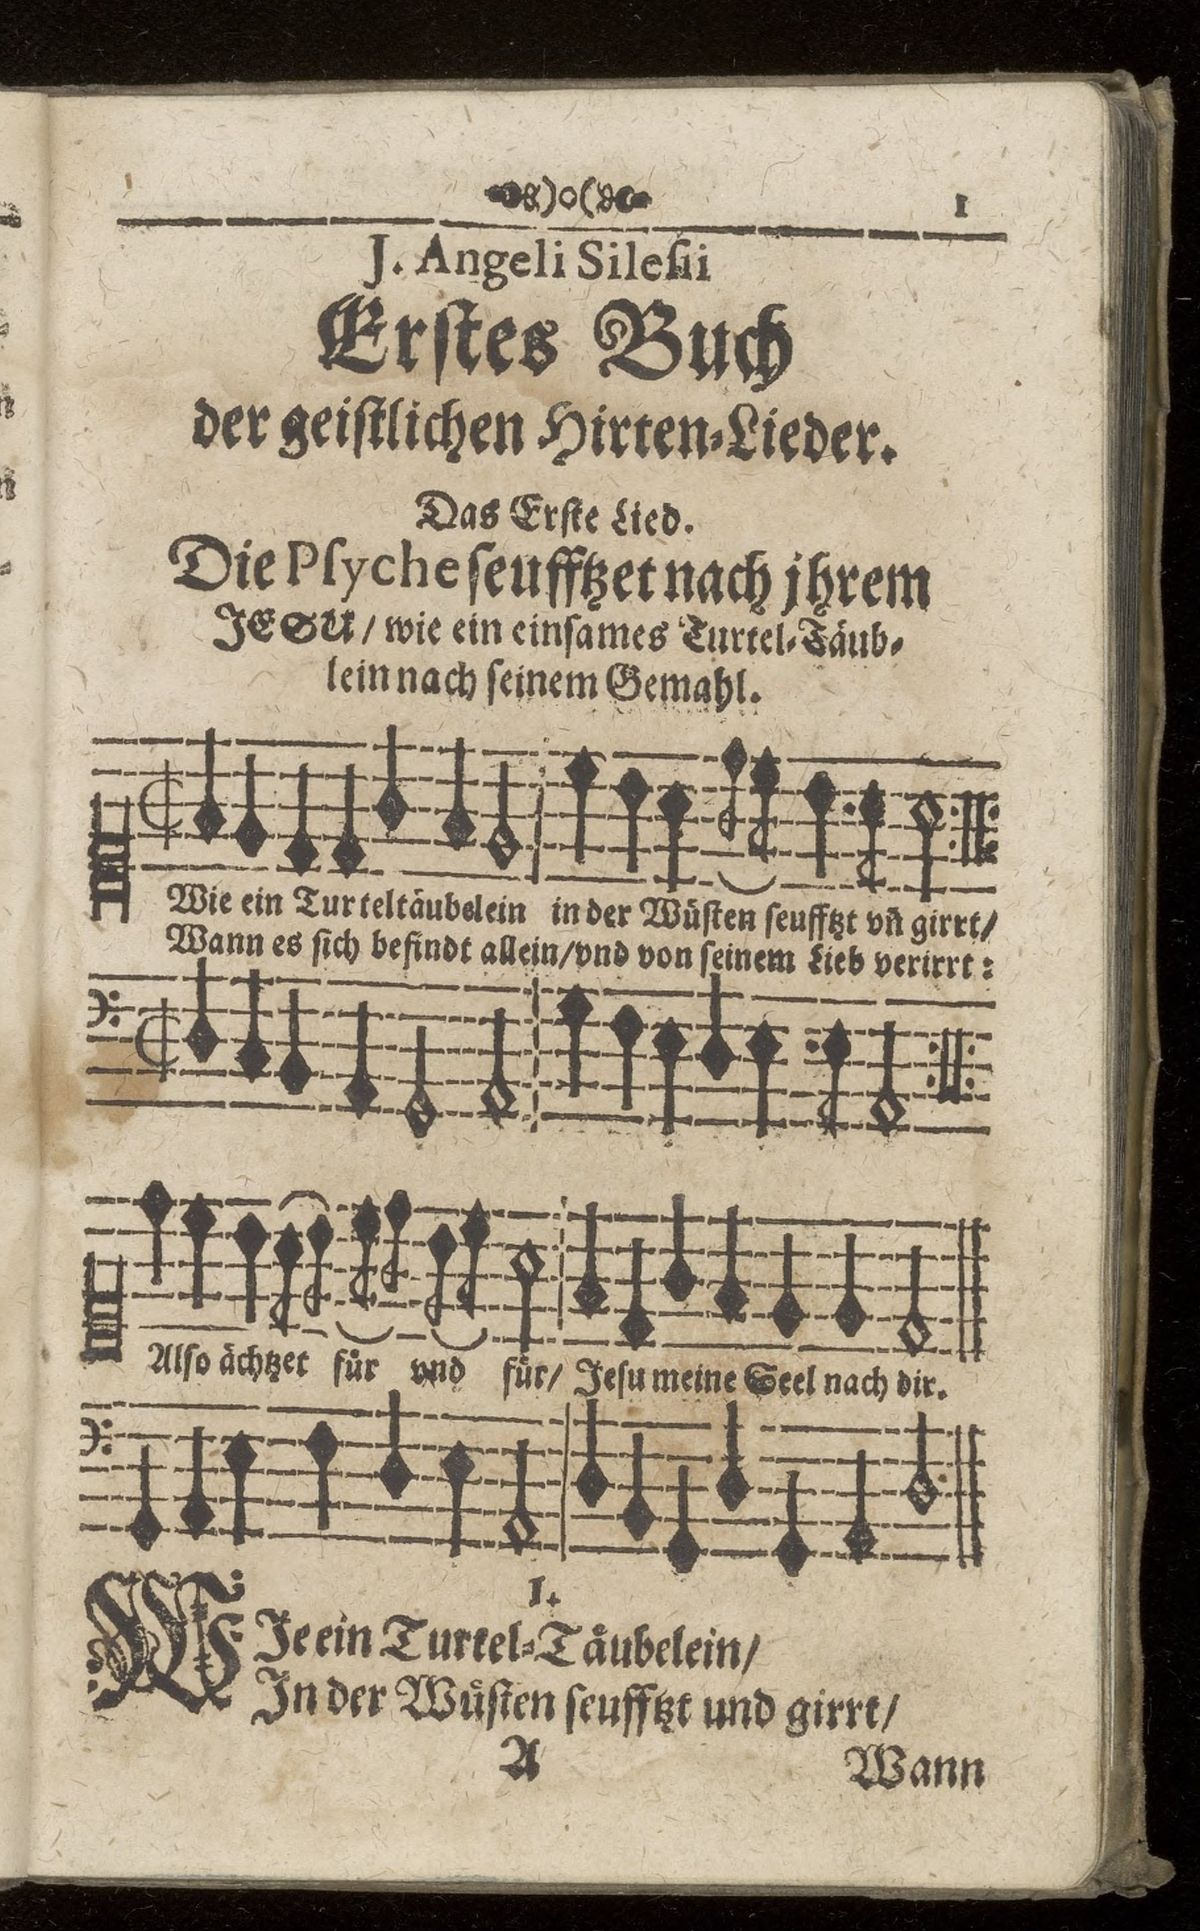 1
J. Angeli Sileſii
Erſtes Buch
der geiſtlichen Hirten-Lieder.
Das Erſte Lied.
Die Pſyche ſeufftzet nach jhrem
JESU / wie ein einſames Turtel-Täub-
lein nach ſeinem Gemahl.
Wie ein Turteltäubelein in der Wüſten ſeufftzt vñ girrt/
Wann es ſich befindt allein/vnd von ſeinem Lieb verirrt:
Alſo ächtzet fuͤr vnd fuͤr/ Jeſu meine Seel nach dir.
I.
WJe ein Turtel-Taͤubelein/
Jn der Wuͤſten ſeufftzt und girrt/
A Wann